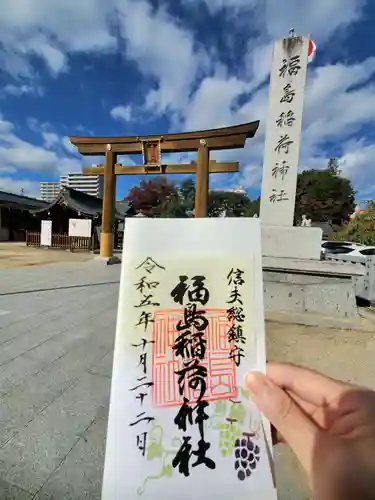 福島稲荷神社
信夫総鎮守
福島稲荷神社
令和五年十月二十二日